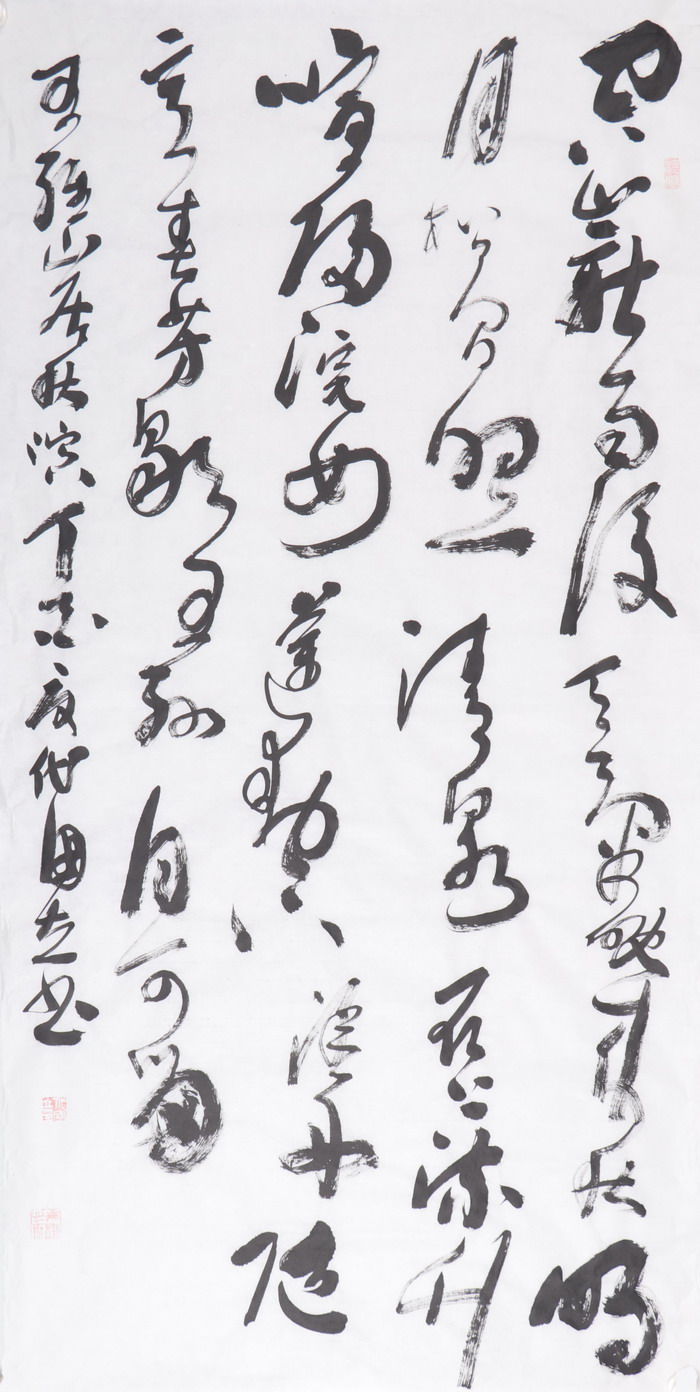 空山新雨後天氣晚來秋明
月松間照清泉石上流竹
喧歸浣女蓮動下漁舟隨
意春芳歇王孫自可留
王維山居秋暝丁夏代國書